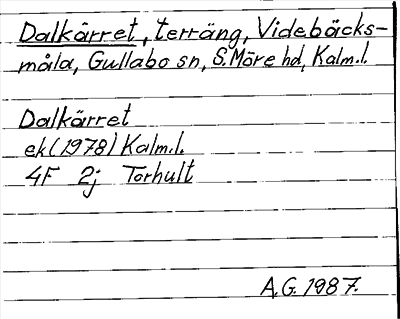 Dalkärret, terräng, Videbäcks-
måla, Gullabo sn, S. Möre hd, Kalm.l.
Dalkärret
ek (1978) Kalm.l.
4F 2j Torhult
A.G. 1987.